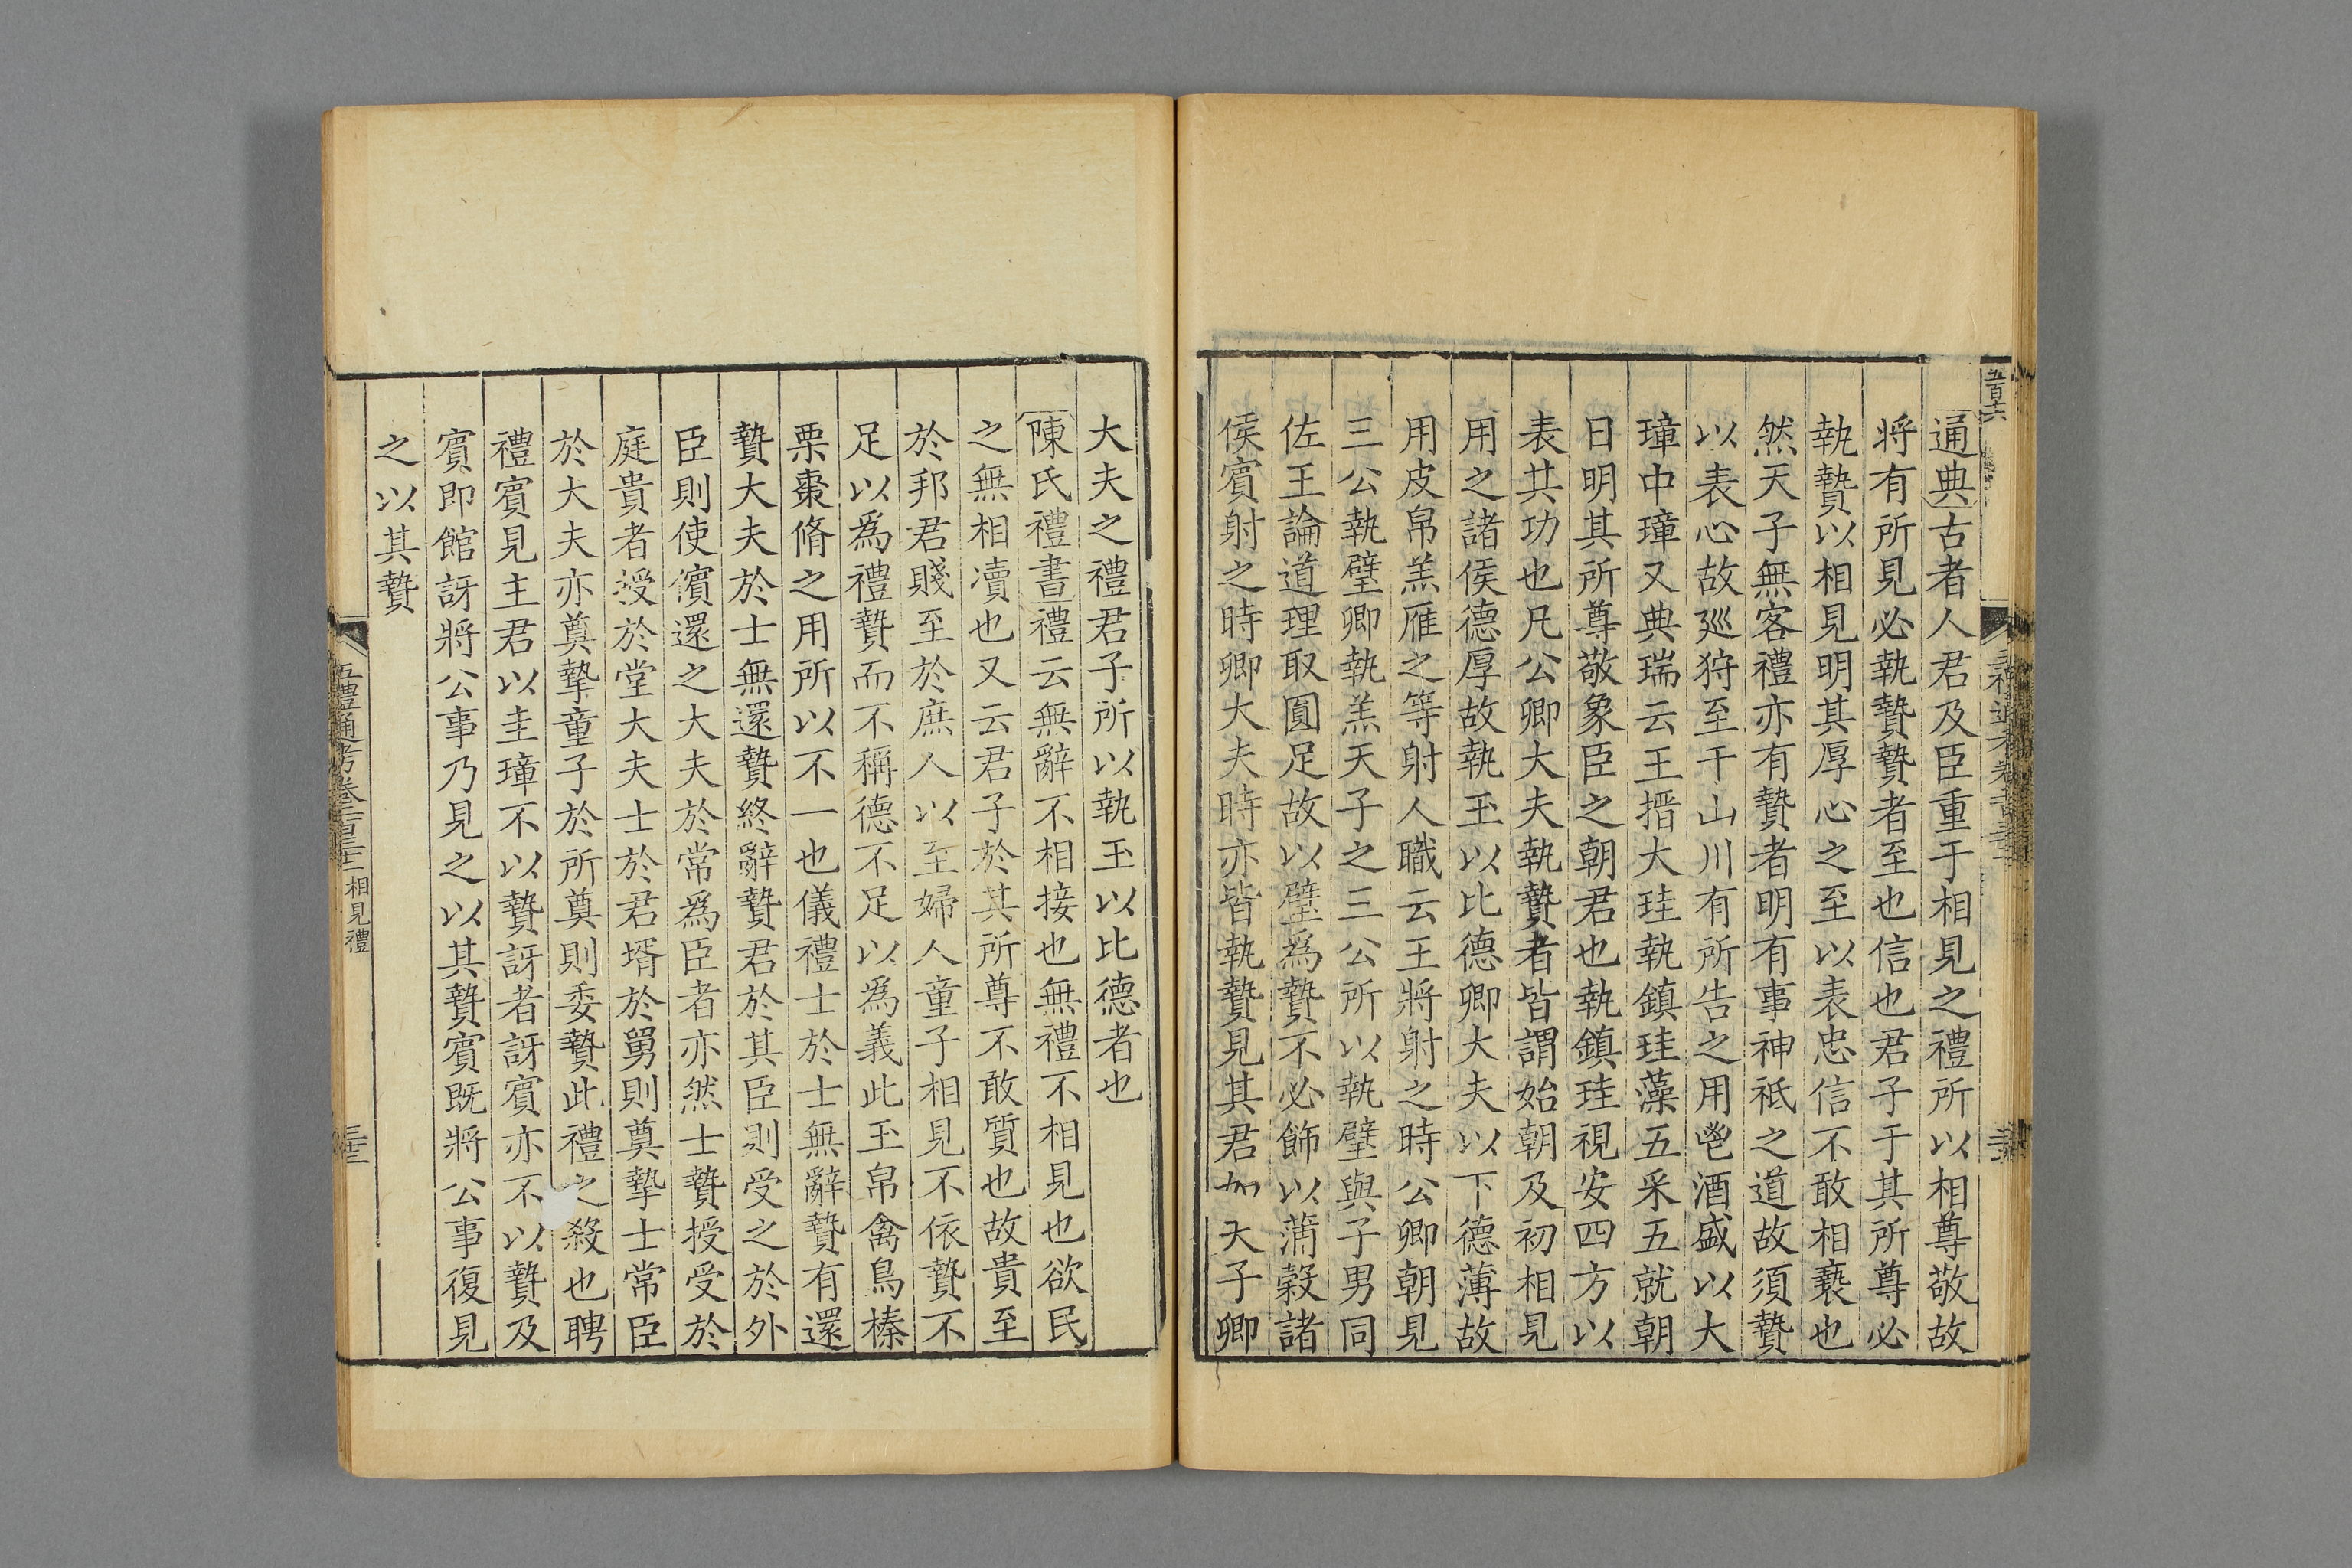 通典古者人君及臣重于相見之禮所以相尊敬故
將有所見必執贄贄者至也信也君子于其所尊必
執贄以相見明其厚心之至以表忠信不敢相褻也
然天子無客禮亦有贄者明有事神祇之道故須贄
以表心故廵狩至于山川有所告之用鬯酒盛以大
璋中璋又典瑞云王搢大珪執鎮珪藻五采五就朝
日明其所尊敬象臣之朝君也執鎮珪視安四方以
表其功也凡公卿大夫執贄者皆謂始朝及初相見
用之諸侯德厚故執玉以比德卿大夫以下德薄故
用皮帛羔雁之等射人職云王將射之時公卿朝見
三公執璧卿執羔天子之三公所以執璧與子男同
佐王論道理取圓足故以璧為贄不必飾以蒲穀諸
侯賓射之時卿大夫時亦皆執贄見其君如天子卿
大夫之禮君子所以執玉以比德者也
陳氏禮書禮云無辭不相接也無禮不相見也欲民
之無相瀆也又云君子於其所尊不敢質也故貴至
於邦君賤至於庶人以至婦人童子相見不依贄不
足以為禮贄而不稱德不足以為義此玉帛禽鳥榛
栗棗脩之用所以不一也儀禮士於士無辭贄有還
贄大夫於士無還贄終辭贄君於其臣則受之於外
臣則使儐還之大夫於常為臣者亦然士贄授受於
庭貴者授於堂大夫士於君壻於舅則奠摯士常臣
於大夫亦奠摯童子於所奠則委贄此禮之殺也聘
禮賓見主君以圭璋不以贄訝者訝賓亦不以贄及
賓即館訝將公事乃見之以其贄賓既將公事復見
之以其贄
五禮通考卷二百三十二相見禮